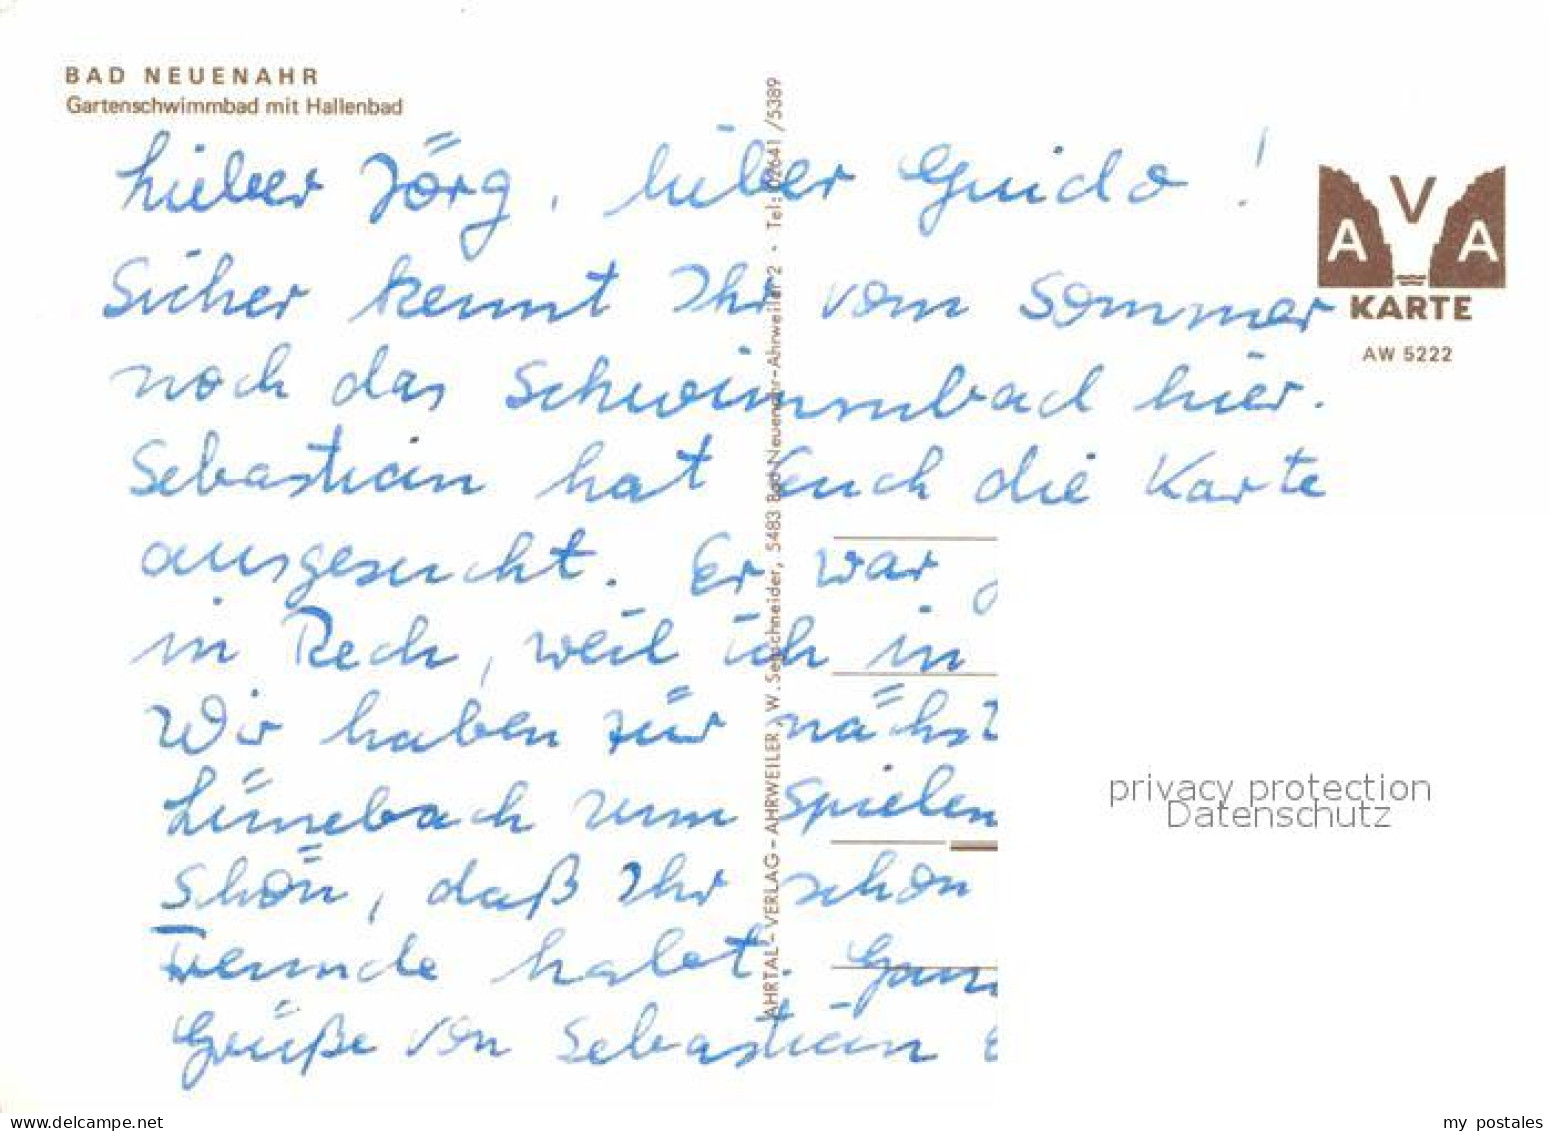 BAD NEUENAHR
Gartenschwimmbad mit Hallenbad
Lieber Jörg, lieber Guido!
Sicher kennt Ihr vom Sommer
noch das Schwimmbad hier.
Sebastian hat Euch die Karte
ausgesucht. Er war
in Rech, weil ich in
Wir haben für nächst
Lünebach zum Spielen
Schön, daß Ihr schon
Freunde habt. Ganz
Grüße von Sebastian
AHRTAL-VERLAG-AHRWEILER, W. Sebschneider, 5483 Bad Neuenahr-Ahrweiler 2 · Tel: 02641/5389
AVA
KARTE
AW 5222
privacy protection
Datenschutz
www.delcampe.net
my_postales